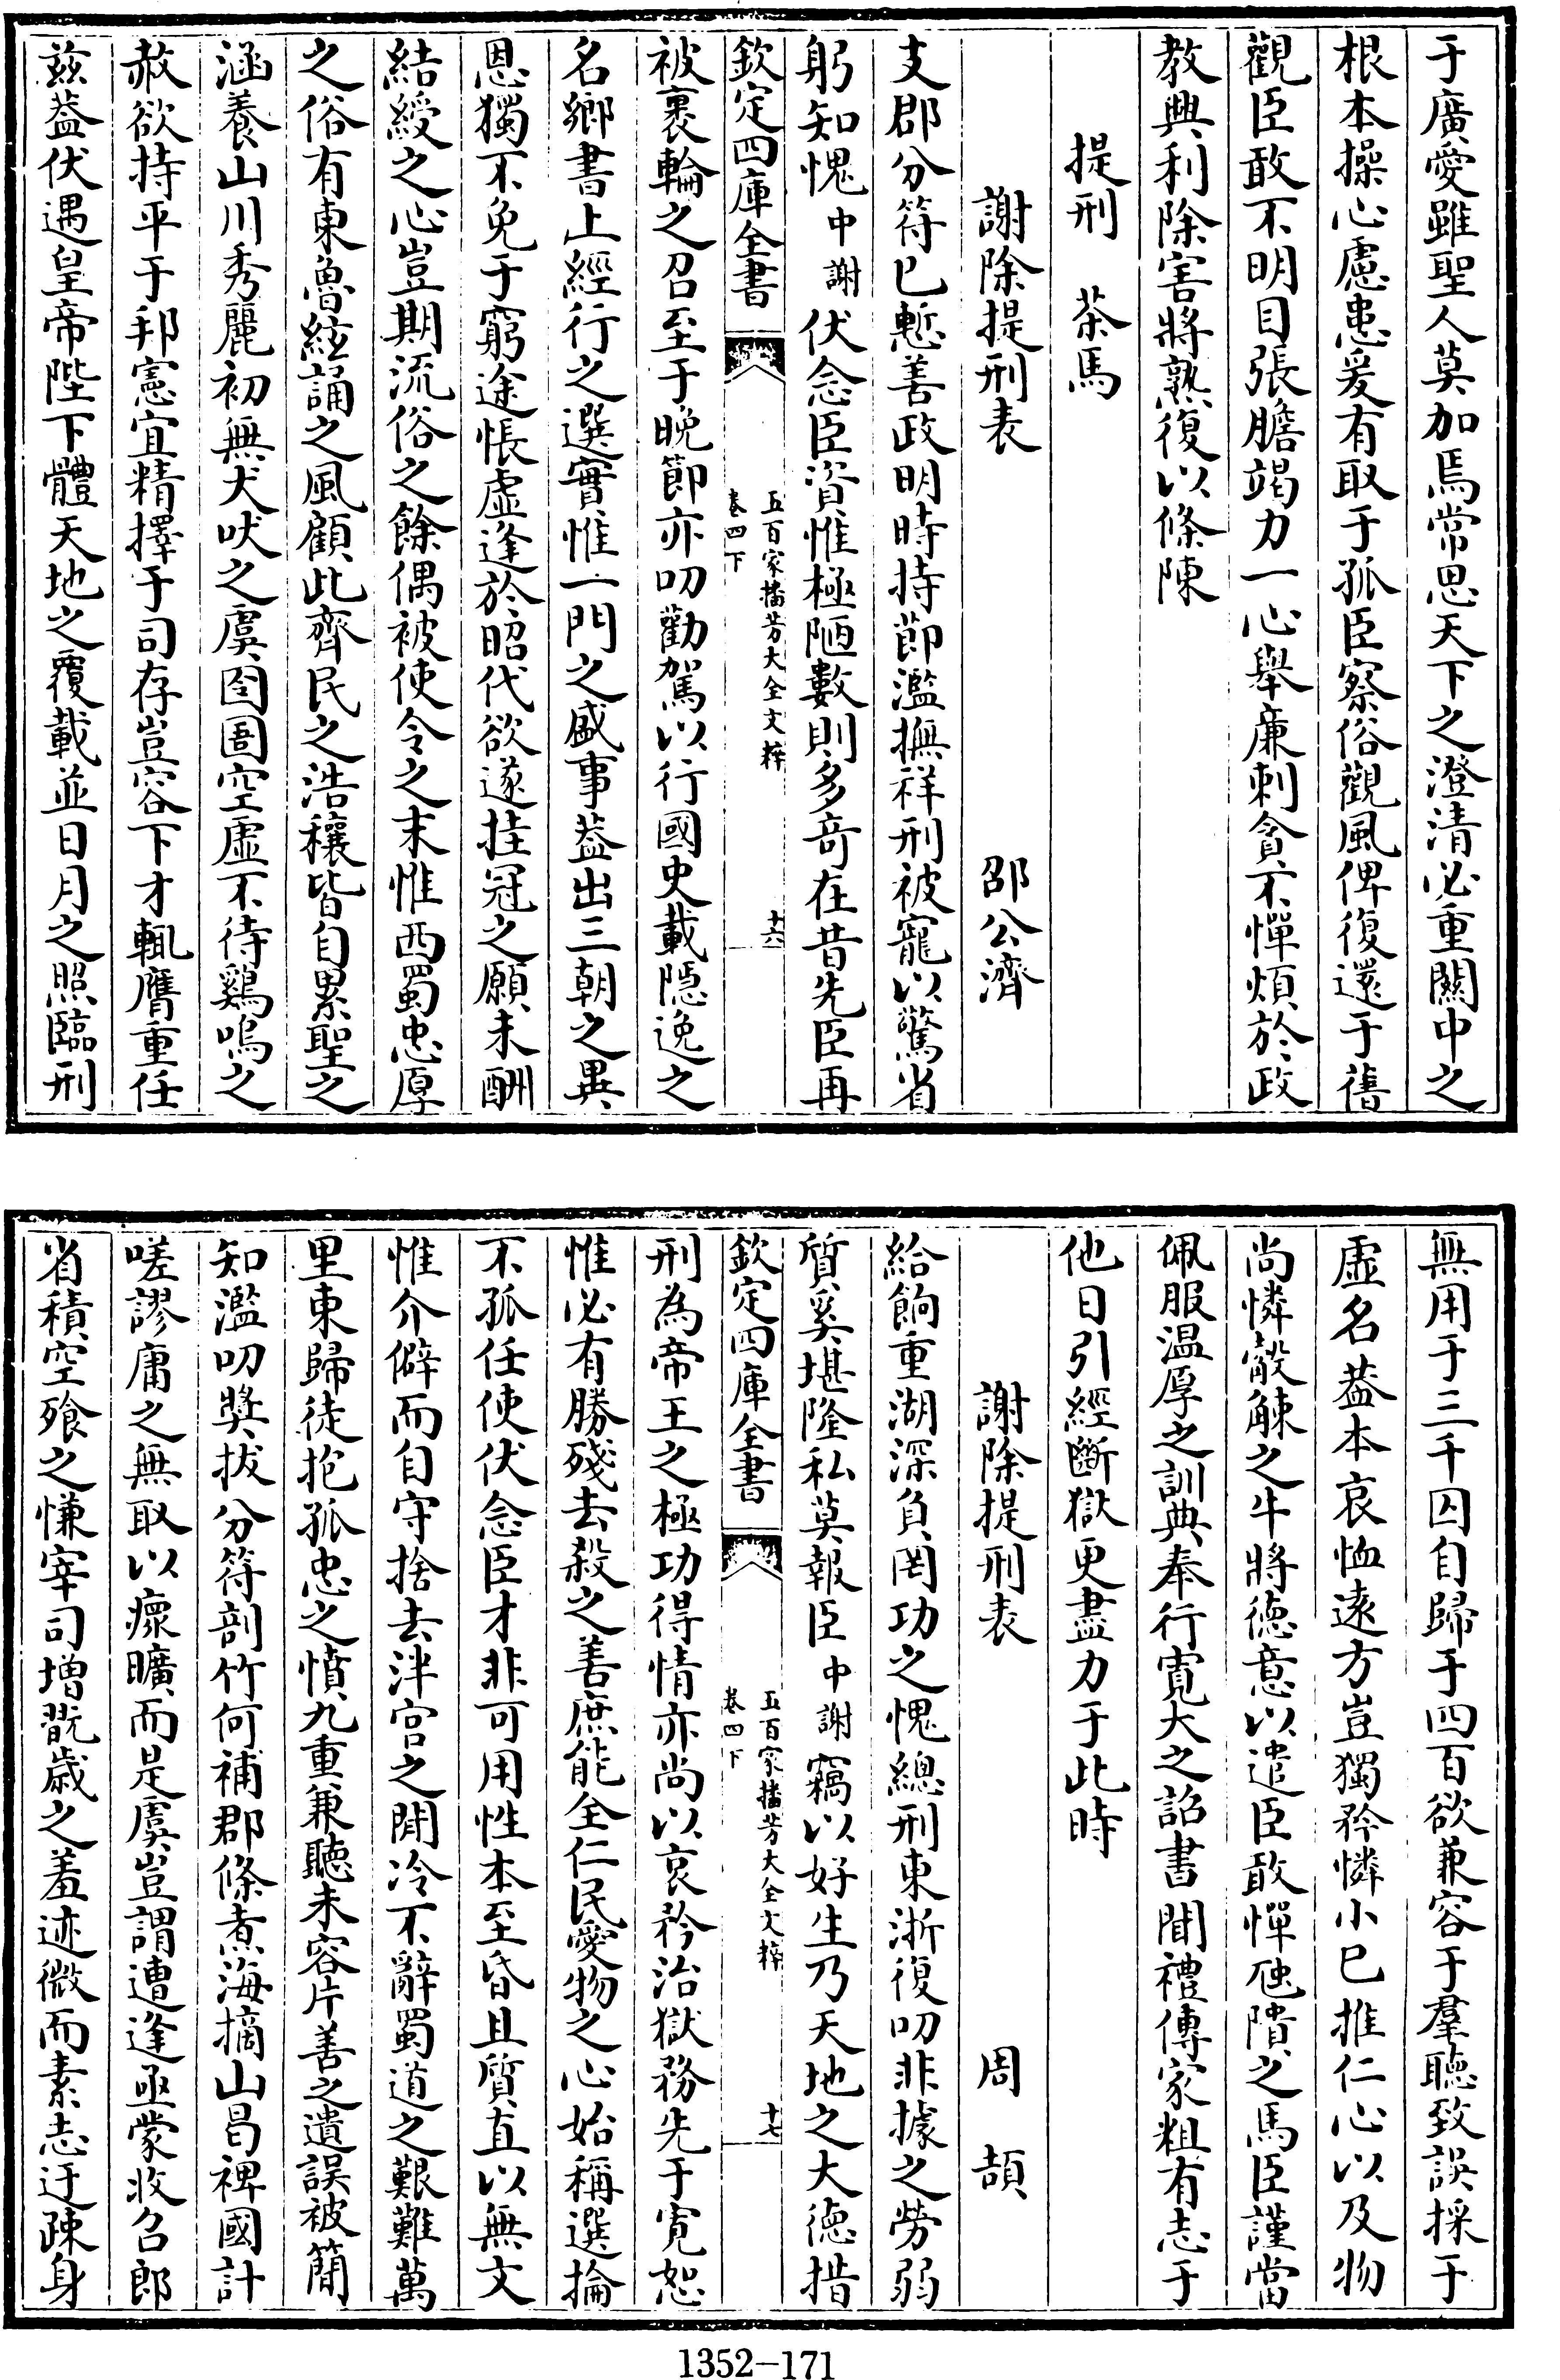 于廣愛雖聖人莫加焉常思天下之澄清必重關中之
根本操心慮患爰有取于孤臣察俗觀風俾復還于舊
觀臣敢不明目張膽竭力一心舉廉刺貪不憚煩於政
教興利除害將熟復以條陳
提刑 茶馬
謝除提刑表 邵公濟
支郡分符已慙善政明時持節濫撫祥刑被寵以驚省
躬知愧中謝伏念臣資惟極陋數則多奇在昔先臣再
欽定四庫全書
五百家播芳大全文粹
卷四下
十六
被裹輪之召至于晚節亦叨勸駕以行國史載隱逸之
名鄉書上經行之選實惟一門之盛事蓋出三朝之異
恩獨不免于窮途悵虛逢於昭代欲遂挂冠之願未酬
結綬之心豈期流俗之餘偶被使令之末惟西蜀忠厚
之俗有東魯絃誦之風顧此齊民之浩穰皆自累聖之
涵養山川秀麗初無犬吠之虞囹圄空虛不待鷄鳴之
赦欲持平于邦憲宜精擇于司存豈容下才輒膺重任
兹蓋伏遇皇帝陛下體天地之覆載並日月之照臨刑
無用于三千囚自歸于四百欲兼容于羣聽致誤採于
虛名蓋本哀恤遠方豈獨矜憐小己推仁心以及物
尚憐觳觫之牛將德意以遣臣敢憚虺隤之馬臣謹當
佩服温厚之訓典奉行寛大之詔書聞禮傳家粗有志于
他日引經斷獄更盡力于此時
謝除提刑表 周頡
給餉重湖深負罔功之愧總刑東浙復叨非據之勞弱
質奚堪隆私莫報臣中謝竊以好生乃天地之大德措
欽定四庫全書
五百家播芳大全文粹
卷四下
十七
刑為帝王之極功得情亦尚以哀矜治獄務先于寛恕
惟必有勝殘去殺之善庶能全仁民愛物之心始稱選掄
不孤任使伏念臣才非可用性本至昏且質直以無文
惟介僻而自守捨去泮宫之閒冷不辭蜀道之艱難萬
里東歸徒抱孤忠之憤九重兼聽未容片善之遺誤被簡
知濫叨奬拔分符剖竹何補郡條煮海摘山曷裨國計
嗟謬庸之無取以瘝曠而是虞豈謂遭逢亟蒙收召郎
省積空飱之慊宰司增翫歲之羞迹微而素志迂疎身
1352-171